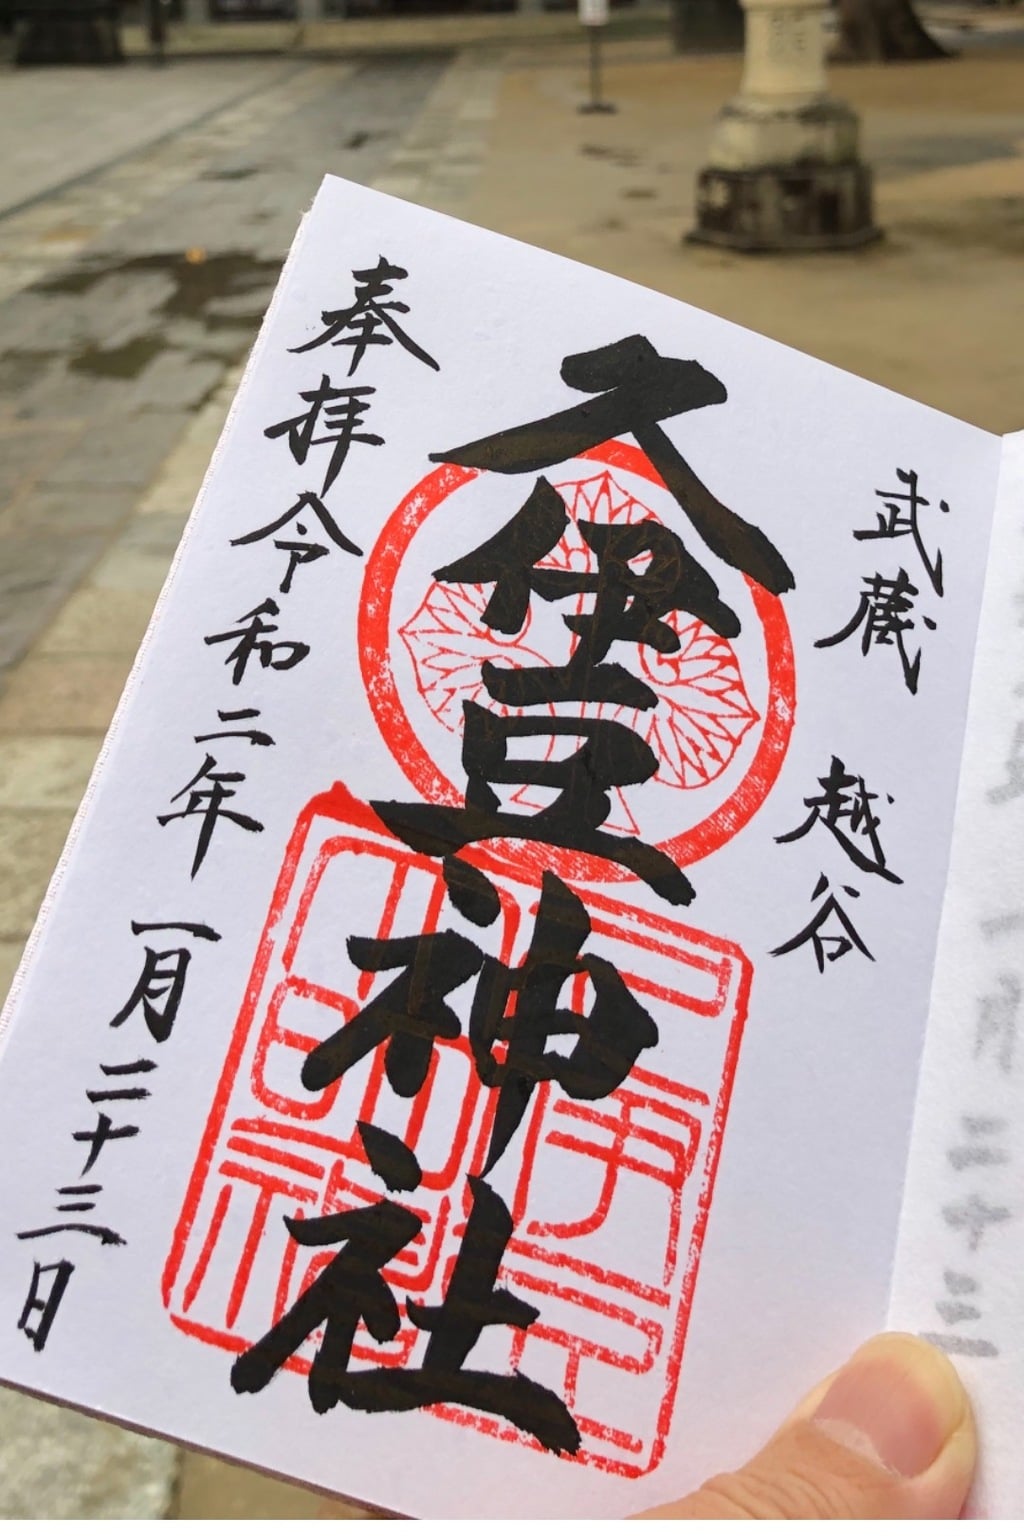 武蔵 越谷
久伊豆神社
奉拝 令和二年 一月二十三日